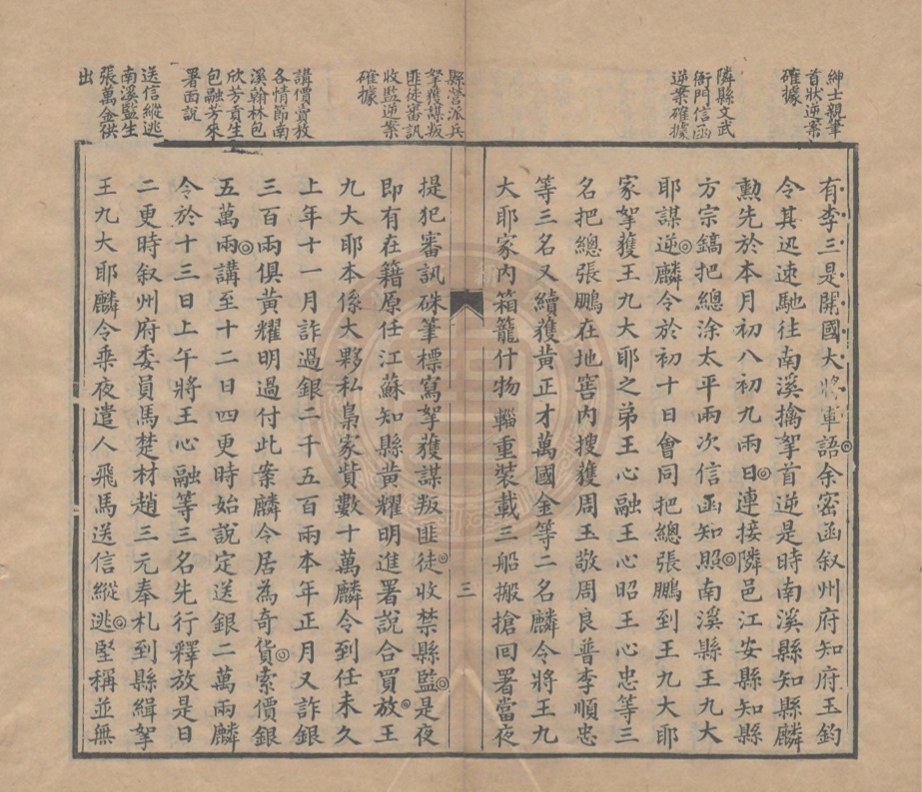 紳士親筆
首狀逆案
確據
隣縣文武
衙門信函
逆案確據
有李三是開國大將軍語余密函叙州府知府玉鈞
令其迅速馳往南溪擒拏首逆是時南溪縣知縣麟
勳先於本月初八初九兩日連接隣邑江安縣知縣
方宗鎬把總涂太平兩次信函知照南溪縣王九大
耶謀逆麟令於初十日會同把總張鵬到王九大耶
家拏獲王九大耶之弟王心融王心昭王心忠等三
名把總張鵬在地窖內搜獲周玉敬周良普李順忠
等三名又續獲黃正才萬國金等二名麟令將王九
大耶家內箱籠什物輜重裝載三船搬搶回署當夜
三
縣營派兵
拏獲謀叛
匪徒審訊
收監逆案
確據
講價賣放
各情節南
溪翰林包
欣芳貢生
包融芳來
署面說
送信縱逃
南溪監生
張萬金供
出
提犯審訊硃筆標寫拏獲謀叛匪徒收禁縣監是夜
即有在籍原任江蘇知縣黃耀明進署說合買放王
九大耶本係大夥私梟家貲數十萬麟令到任未久
上年十一月詐過銀二千五百兩本年正月又詐銀
三百兩俱黃耀明過付此案麟令居為奇貨索價銀
五萬兩講至十二日四更時始說定送銀二萬兩麟
令於十三日上午將王心融等三名先行釋放是日
二更時叙州府委員馬楚材趙三元奉札到縣緝拏
王九大耶麟令乘夜遣人飛馬送信縱逃堅稱並無